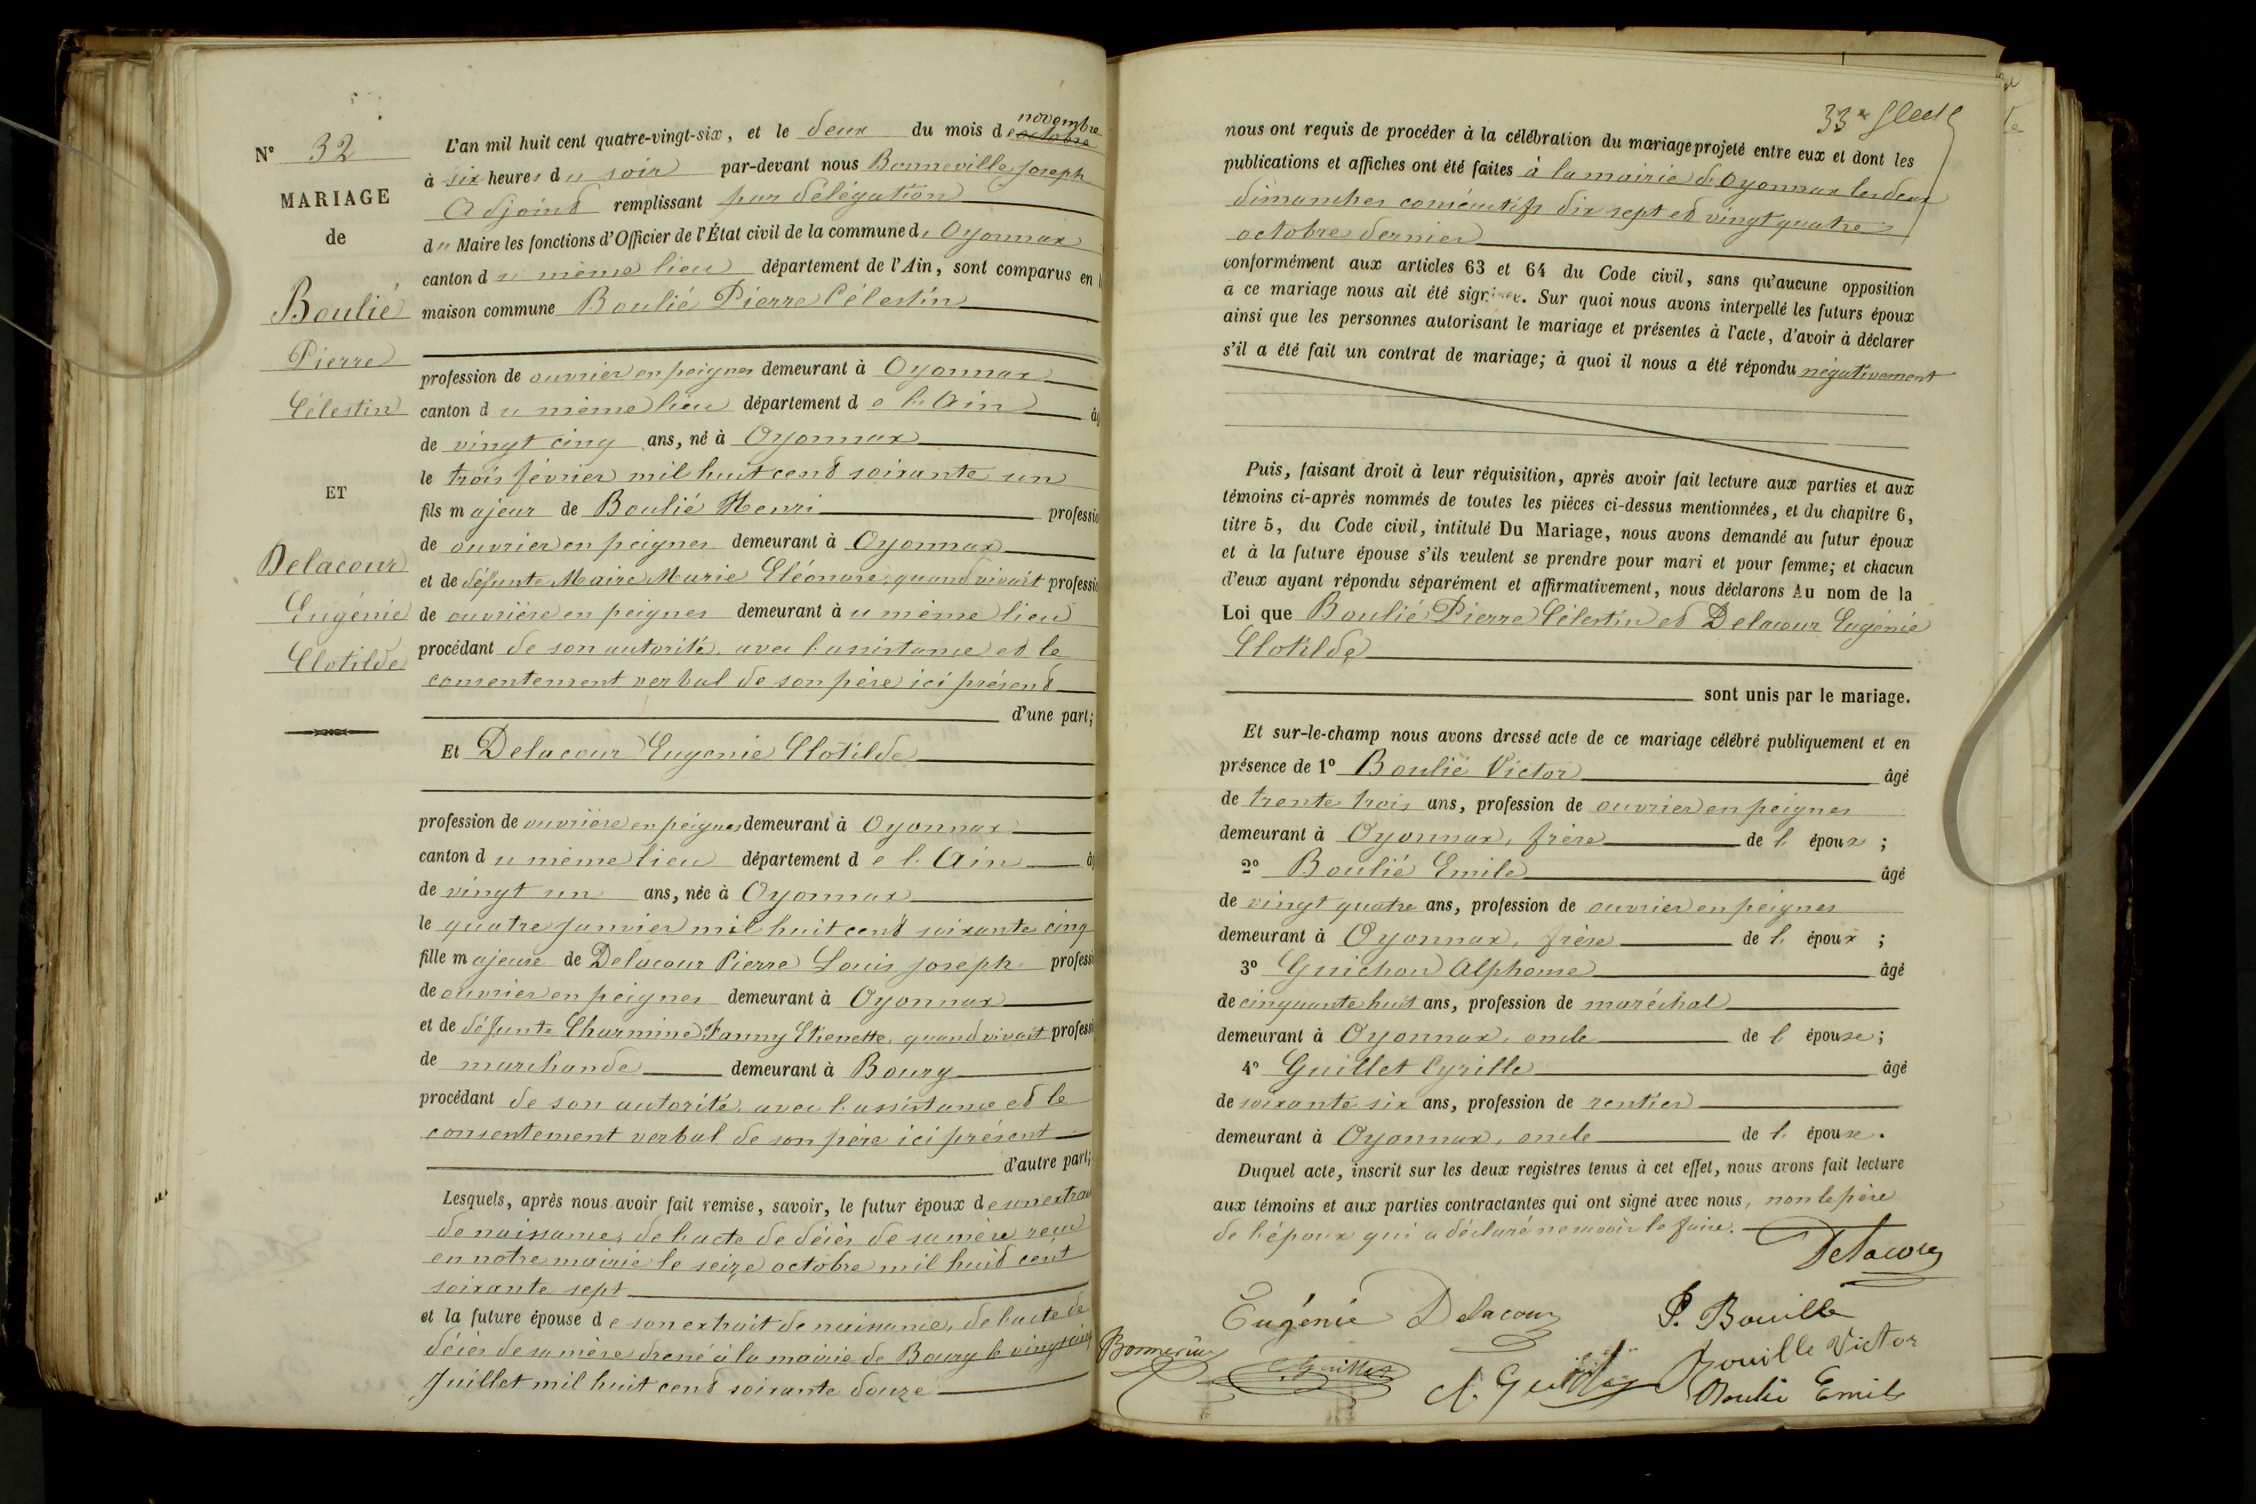 N° 32
MARIAGE
de
Boulié
Pierre
Célestin
ET
Delacour
Eugénie
Clotilde
L'an mil huit cent quatre-vingt-six, et le deux du mois de octobre novembre
à six heures du soir par-devant nous Bonneville Joseph
Adjoint remplissant par délégation
du Maire les fonctions d'Officier de l'État civil de la commune d' Oyonnax
canton du même lieu département de l'Ain, sont comparus en
maison commune Boulié Pierre Célestin
profession de ouvrier en peignes demeurant à Oyonnax
canton du même lieu département de l'Ain
de vingt cinq ans, né à Oyonnax
le trois février mil huit cent soixante un
fils majeur de Boulié Henri professi
de ouvrier en peignes demeurant à Oyonnax
et de défunte Maire Marie Eléonore, quand vivait professi
de ouvrière en peignes demeurant au même lieu
procédant de son autorité, avec l'assistance et le
consentement verbal de son père ici présent
d'une part;
Et Delacour Eugenie Clotilde
profession de ouvrière en peignes demeurant à Oyonnax
canton du même lieu département de l'Ain
de vingt un ans, née à Oyonnax
le quatre janvier mil huit cent soixante cinq
fille majeure de Delacour Pierre Louis Joseph professi
de ouvrier en peignes demeurant à Oyonnax
et de défunte Charmine Fanny Etienette, quand vivait professi
de marchande demeurant à Bourg
procédant de son autorité, avec l'assistance et le
consentement verbal de son père ici présent
d'autre part;
Lesquels, après nous avoir fait remise, savoir, le futur époux de son extrai
de naissance, de l'acte de décès de sa mère reçu
en notre mairie le seize octobre mil huit cent
soixante sept
et la future épouse de son extrait de naissance, de l'acte de
décès de sa mère dressé à la mairie de Bourg le vingt
Juillet mil huit cent soixante douze
nous ont requis de procéder à la célébration du mariage projeté entre eux et dont les
publications et affiches ont été faites à la mairie d'Oyonnax les deux
dimanches consécutifs dix sept et vingt quatre
octobre dernier
conformément aux articles 63 et 64 du Code civil, sans qu'aucune opposition
à ce mariage nous ait été signifiée. Sur quoi nous avons interpellé les futurs époux
ainsi que les personnes autorisant le mariage et présentes à l'acte, d'avoir à déclarer
s'il a été fait un contrat de mariage; à quoi il nous a été répondu négativement
Puis, faisant droit à leur réquisition, après avoir fait lecture aux parties et aux
témoins ci-après nommés de toutes les pièces ci-dessus mentionnées, et du chapitre 6,
titre 5, du Code civil, intitulé Du Mariage, nous avons demandé au futur époux
et à la future épouse s'ils veulent se prendre pour mari et pour femme; et chacun
d'eux ayant répondu séparément et affirmativement, nous déclarons Au nom de la
Loi que Boulié Pierre Célestin et Delacour Eugénie
Clotilde
sont unis par le mariage.
Et sur-le-champ nous avons dressé acte de ce mariage célébré publiquement et en
présence de 1° Boulié Victor âgé
de trente trois ans, profession de ouvrier en peignes
demeurant à Oyonnax, frère de l'époux;
2° Boulié Emile âgé
de vingt quatre ans, profession de ouvrier en peignes
demeurant à Oyonnax, frère de l'époux;
3° Guichon Alphonse âgé
de cinquante huit ans, profession de maréchal
demeurant à Oyonnax, oncle de l'épouse;
4° Guillet Cyrille âgé
de soixante six ans, profession de rentier
demeurant à Oyonnax, oncle de l'épouse.
Duquel acte, inscrit sur les deux registres tenus à cet effet, nous avons fait lecture
aux témoins et aux parties contractantes qui ont signé avec nous, non le père
de l'époux qui a déclaré ne savoir le faire.
Delacour
Eugénie Delacour P. Bouille
Bonneville C. Guillet Bouille Victor
Boulié Emile